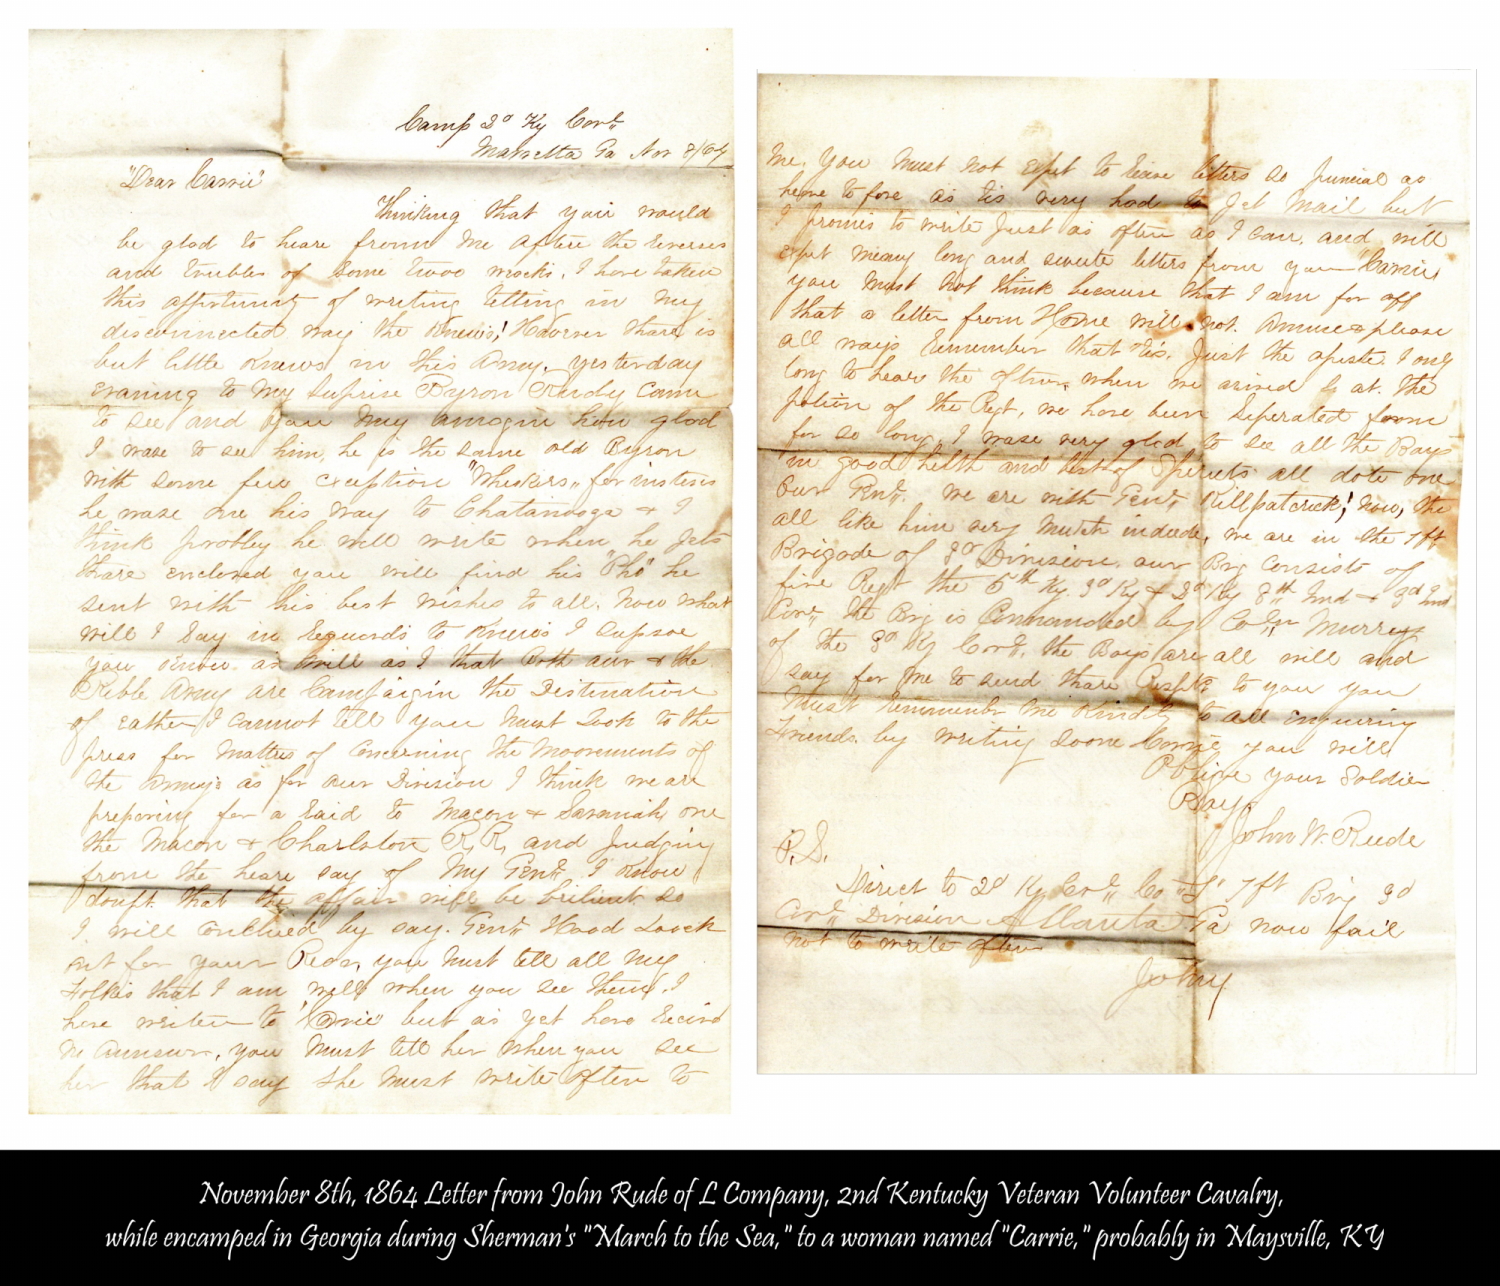 Camp 2d Ky Cav
Marietta Ga Nov 8/64
"Dear Carrie"
Thinking that you would
be glad to heare from me after the reverses
and trubles of some twoo weeks, I have taken
this oppertunity of writing letting in my
disconnected way the knews! However thare is
but little knews in this Army, yesterday
evaning to my suprise Byron Rudy came
to see and you may imagin how glad
I wase to see him, he is the same old Byron
with some few exception "Whiskers" for instens
he wase one his way to Chatanooga & I
think probley he will write when he gets
thare enclosed you will find his "Pho" he
sent with his best wishes to all. Now what
will I say in reguards to knews I supose
you know as will as I that Both our & the
Rible Army are Campaigin the Distination
of eather I cannot tell you must Look to the
press for mattres of Concerning the Moovements of
the armys as for our Division I think we are
preparing for a raid to Macon & Savanah, one
the Macon & Charlston R, R, and Judging
from the heare say of my Genl. I know
douft that the affair will be brilient so
I will conclued by say. Genl. Hood Loock
out for your Rear, you must tell all my
Folkes that I am well when you see them. I
have writen to but as yet have recivd
no Aunswer, you must tell her when you see
her that I say she must write often to
me. You must not expet to reave letters so as
heare to fore as tis very had to get Mail but
I promis to write Just as often as I can, and will
expet meany long and letters from you "Carrie"
you must not think because that I am far off
that a letter from Home will not. please
all ways remember that tis. Just the I only
long to heare the oftner, when we arived at. the
potion of the Regt, we have been Seperated from
for so long, I wase very glad to see all the Boys
in good helth and best of all dote one
our Genl. we are with Genl. Killpatrick! Now, the
all like him very mutch indeede, we are in the 1ft
Brigade of 3d Division our Brg Consists of
five Regt the 5th Ky. 3d Ky & 2d Ky 8th Ind & 3d Ind
Cav, the Brg is Commanded by Coln Murrey
of the 3d Ky Cav. the Boys are all will and
say for me to send thare Respts to you you
must remember me kindly to all inquiring
Friends. by writing soone Carrie you will
Oblige your Soldier
Boy,
John W. Rude
P.S.
Direct to 2d Ky Cav Co "L" 1ft Brig 3d
Cav Division Atlanta Ga now fail
not to write often
Johny
November 8th, 1864 Letter from John Rude of L Company, 2nd Kentucky Veteran Volunteer Cavalry,
while encamped in Georgia during Sherman's "March to the Sea," to a woman named "Carrie," probably in Maysville, KY